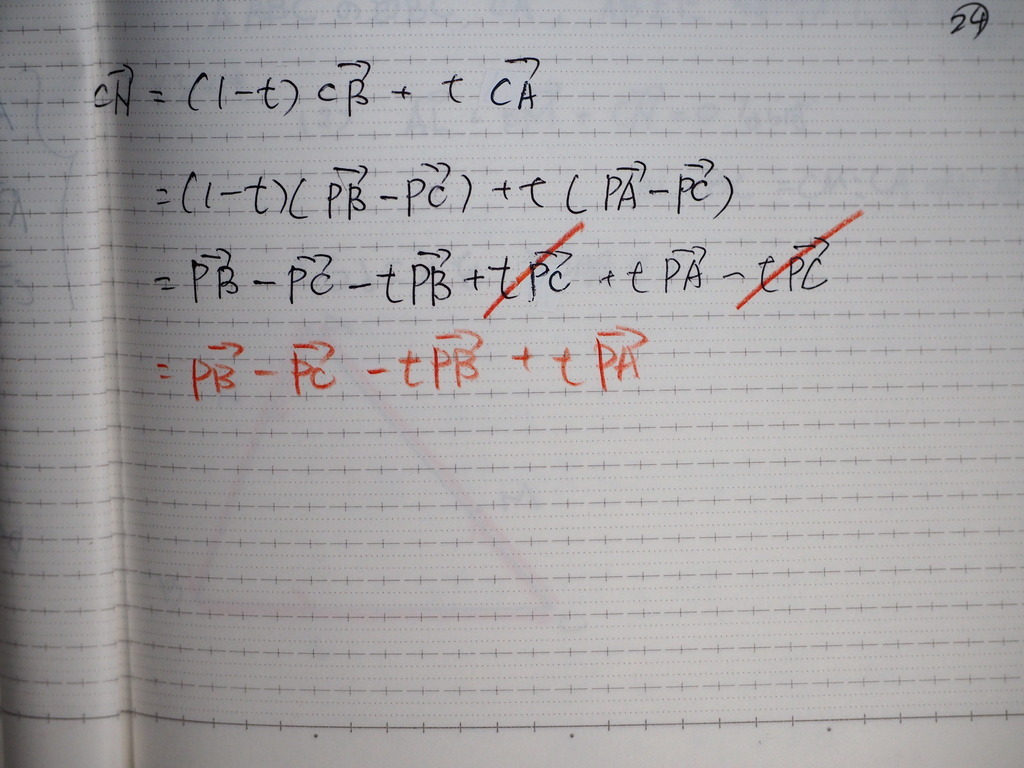 24
→CN = (1-t) →CB + t →CA
= (1-t)( →PB - →PC ) + t ( →PA - →PC )
= →PB - →PC - t →PB + t →PC + t →PA - t →PC
= →PB - →PC - t →PB + t →PA